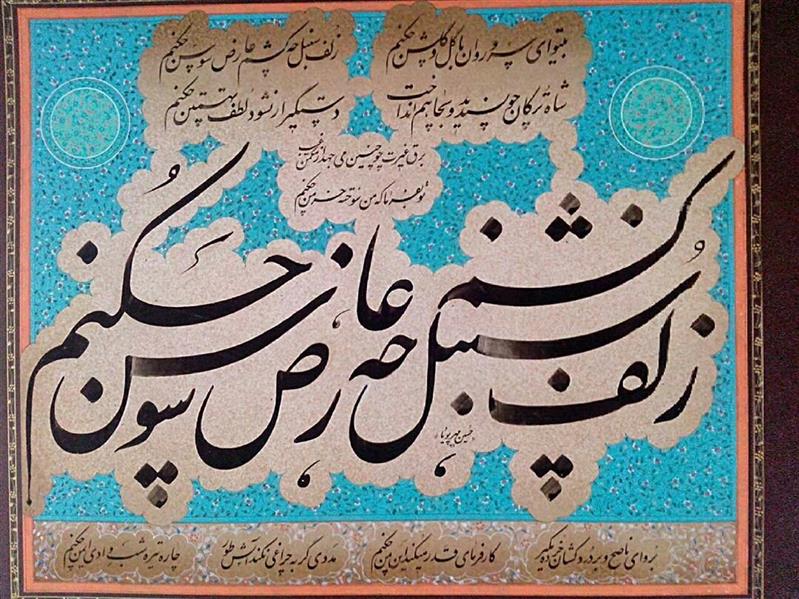 بیتو ای سرو روان با گل و گلشن چکنم
زلف سنبل چه کشم عارض سوسن چکنم
شاه ترکان چو پسندید و بچاهم انداخت
دستگیر ار نشود لطف تهمتن چکنم
برق غیرت چو چنین می جهد از مکمن غیب
تو بفرما که من سوخته خرمن چکنم
زلف سنبل چه کشم عارض سوسن چکنم
برو ای ناصح و بر دردکشان خرده مگیر
کارفرمای قدر میکند این من چکنم
مددی گر به چراغی نکند آتش طور
چاره تیره شب وادی ایمن چکنم